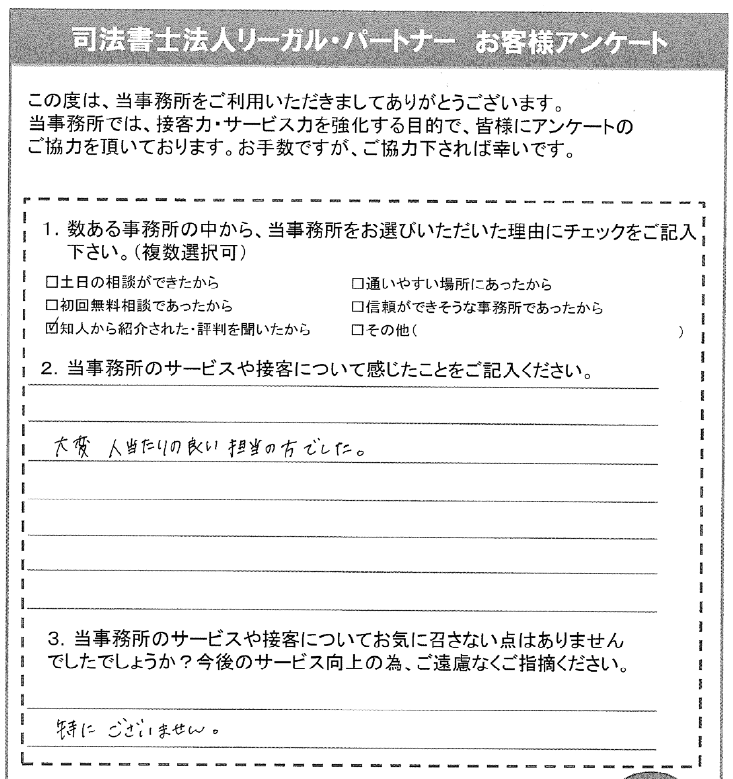 司法書士法人リーガル・パートナー お客様アンケート
この度は、当事務所をご利用いただきましてありがとうございます。
当事務所では、接客力・サービス力を強化する目的で、皆様にアンケートの
ご協力を頂いております。お手数ですが、ご協力下されば幸いです。
1. 数ある事務所の中から、当事務所をお選びいただいた理由にチェックをご記入
下さい。(複数選択可)
□土日の相談ができたから □通いやすい場所にあったから
□初回無料相談であったから □信頼ができそうな事務所であったから
☑知人から紹介された・評判を聞いたから □その他( )
2. 当事務所のサービスや接客について感じたことをご記入ください。
大変 人当たりの良い 担当の方でした。
3. 当事務所のサービスや接客についてお気に召さない点はありません
でしたでしょうか?今後のサービス向上の為、ご遠慮なくご指摘ください。
特に ございません。